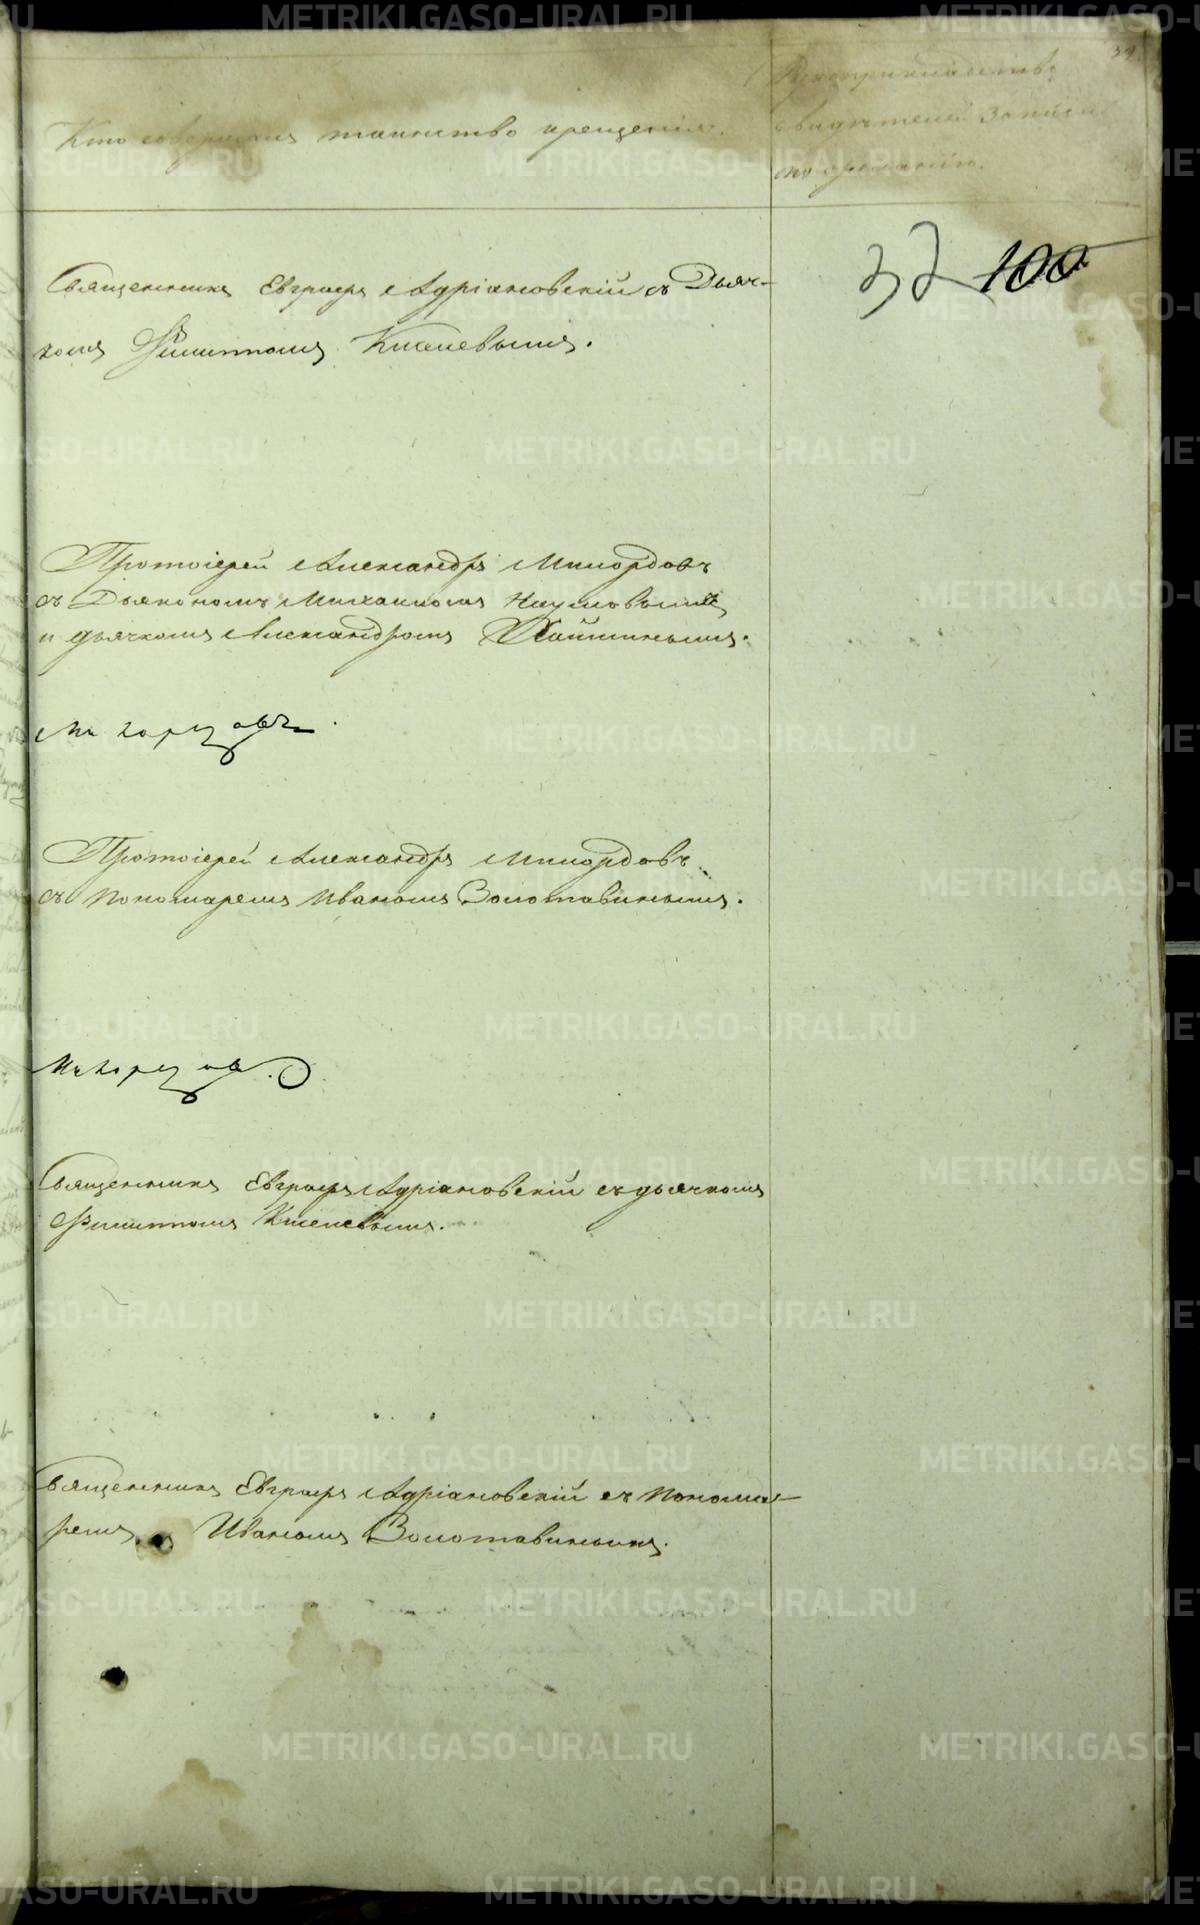 Кто совершалъ таинство крещенія.
Рукоприкладство
свидѣтелей записи
по желанію.
32 100
Священникъ Евграфъ Адріановскій съ Дьяч-
комъ Филиппомъ Киселевымъ.
Протоіерей Александръ
съ Дьякономъ Михаиломъ Наумовымъ
и дьячкомъ Александромъ
Протоіерей Александръ
съ Пономаремъ Иваномъ Золотавинымъ.
Священникъ Евграфъ Адріановскій съ дьячкомъ
Филиппомъ Киселевымъ.
Священникъ Евграфъ Адріановскій съ Понома-
ремъ Иваномъ Золотавинымъ.
METRIKI.GASO-URAL.RU